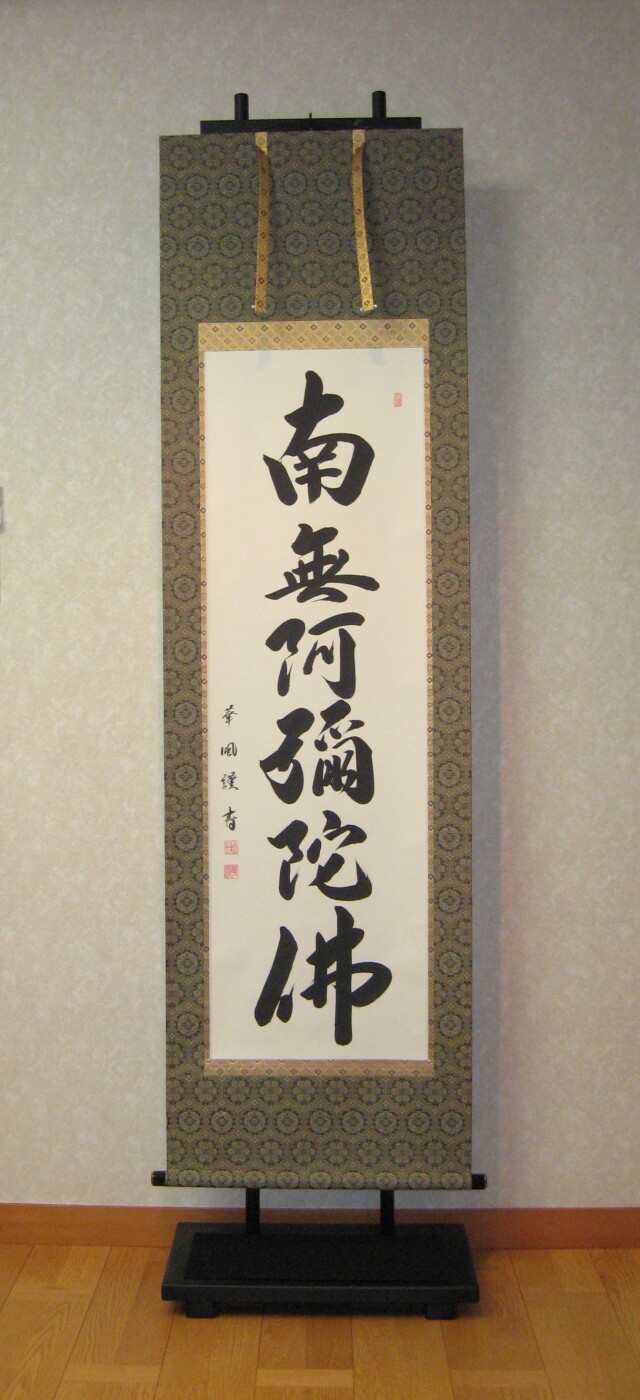 南無阿彌陀佛
華風謹書